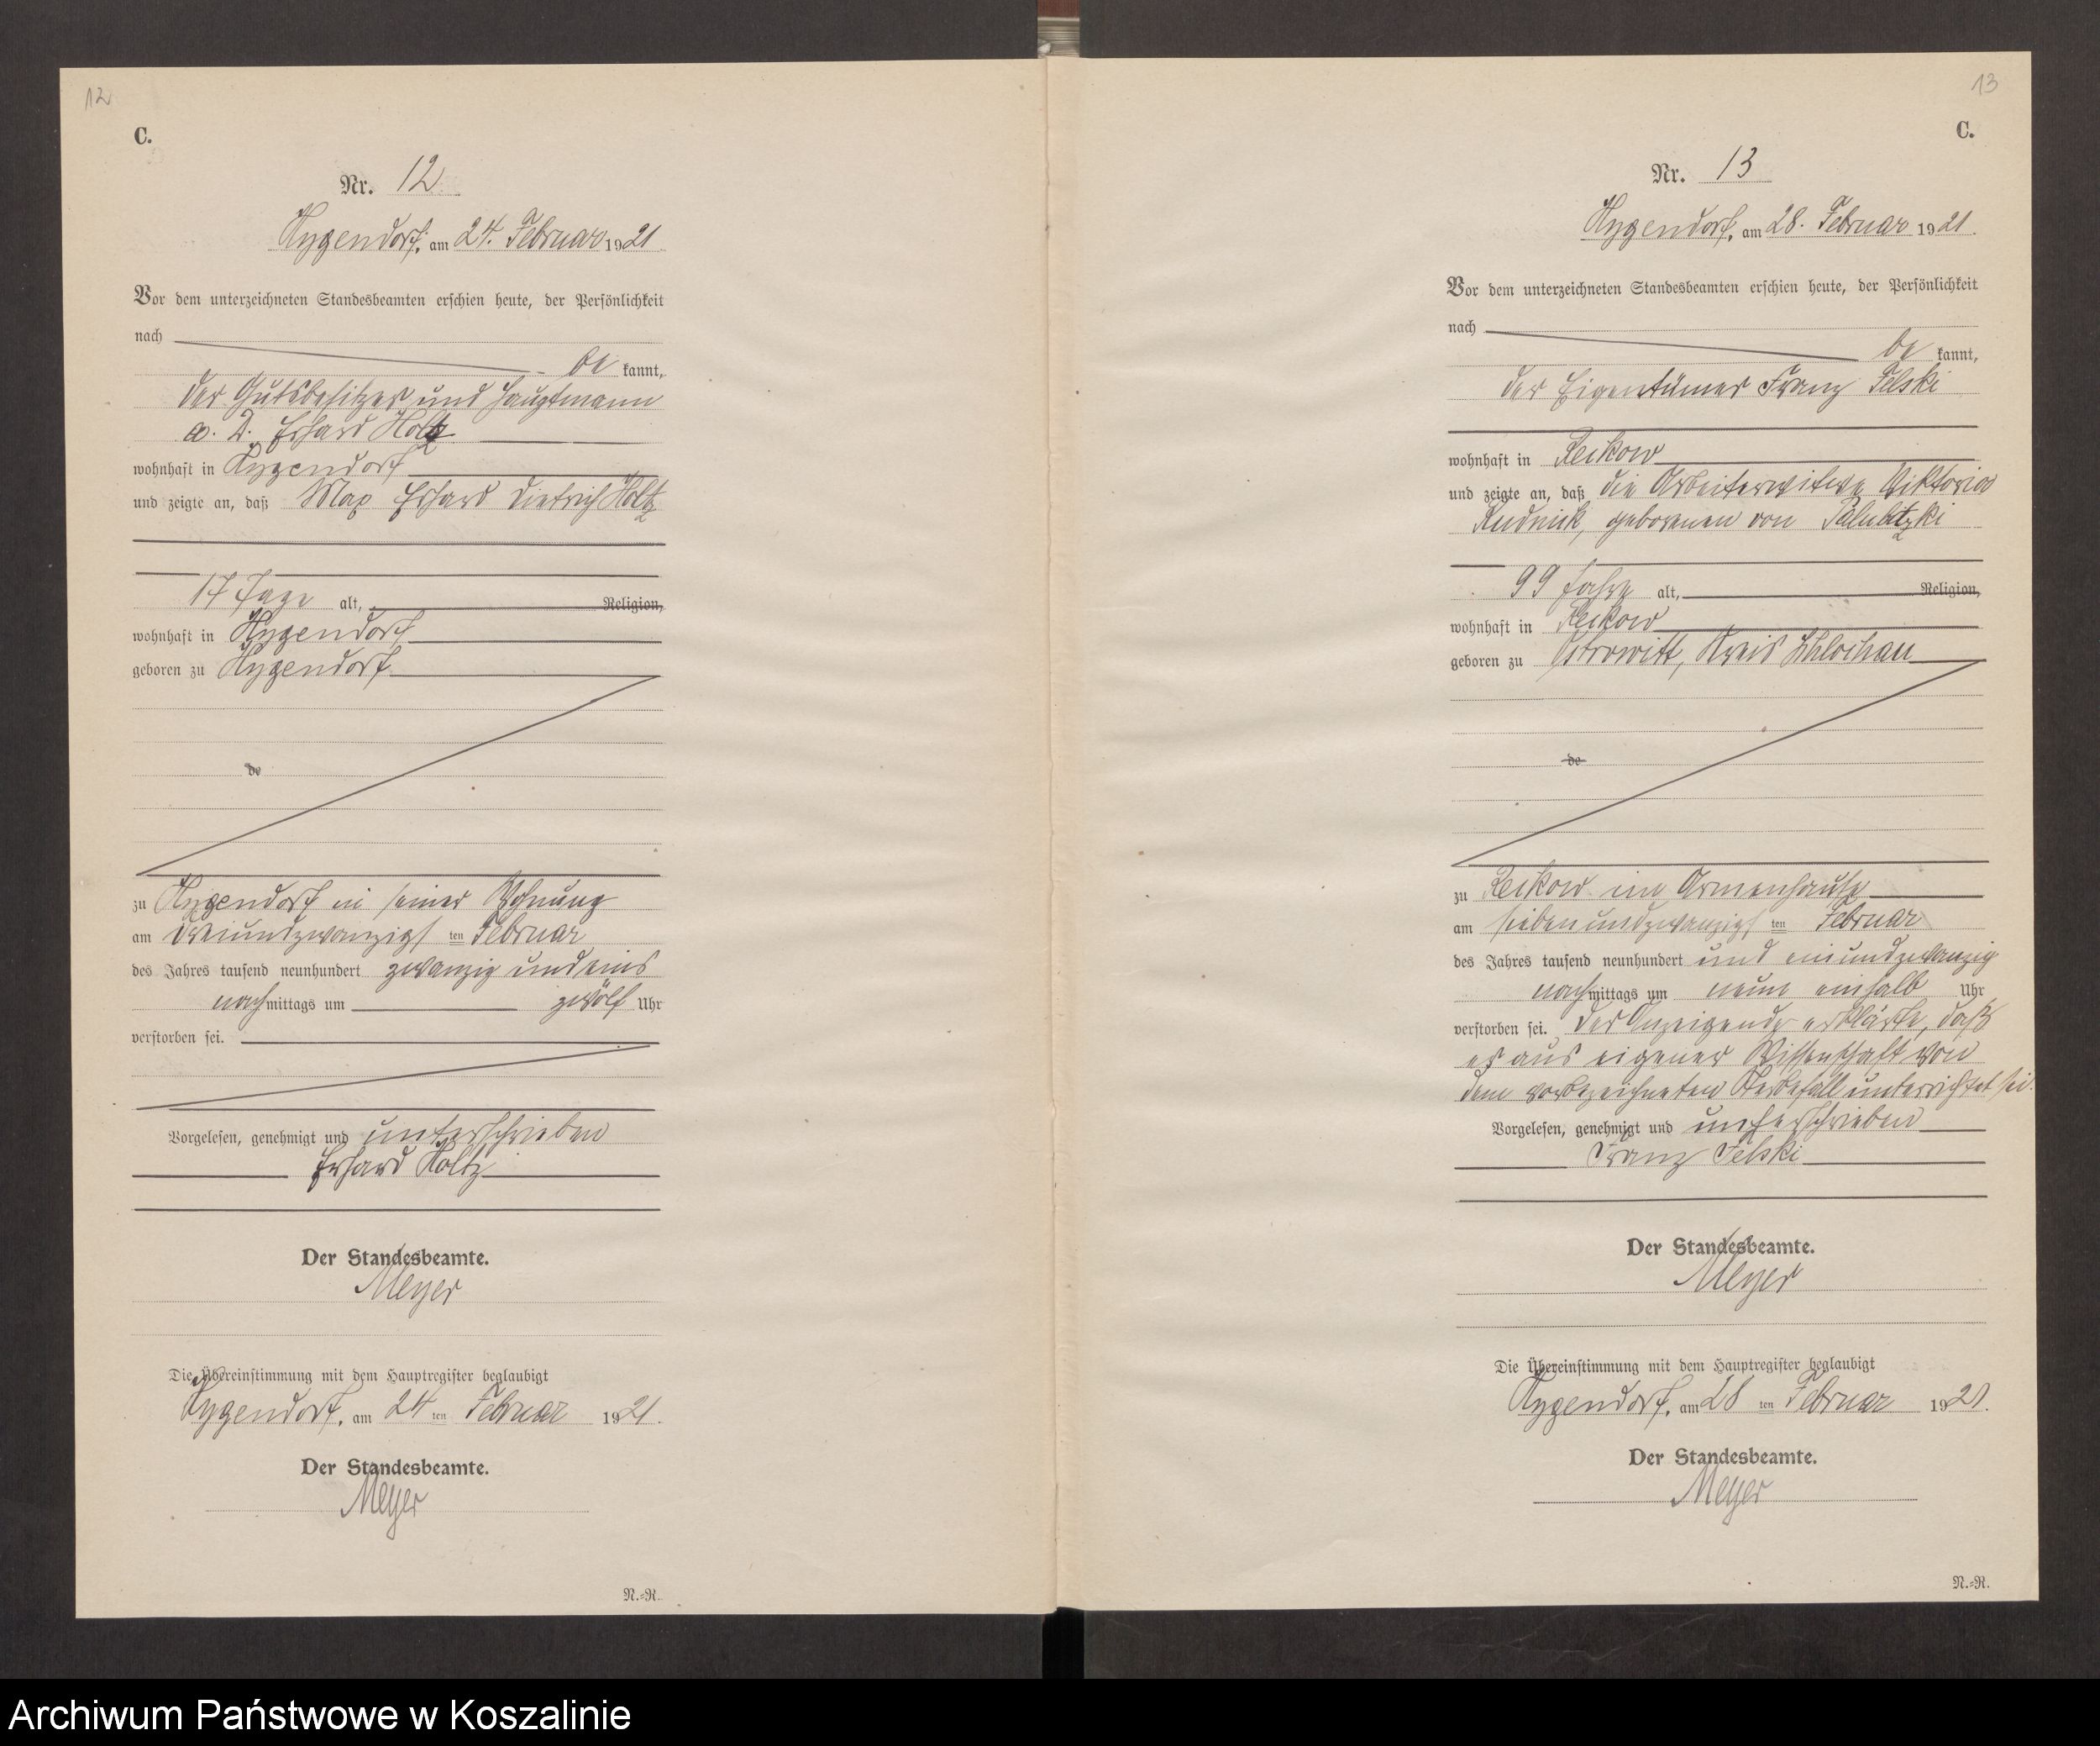 12
C.
Nr. 12
Hygendorf, am 24. Februar 1921
Vor dem unterzeichneten Standesbeamten erschien heute, der Persönlichkeit
nach
be kannt,
der Gutsbesitzer und Hauptmann
a. D. Erhard Holtz
wohnhaft in Hygendorf
und zeigte an, daß Max Erhard Dietrich Holtz
17 Tage alt, Religion,
wohnhaft in Hygendorf
geboren zu Hygendorf
de
zu Hygendorf in seiner Wohnung
am dreiundzwanzigsten Februar
des Jahres tausend neunhundert zwanzig und eins
nachmittags um zwölf Uhr
verstorben sei.
Vorgelesen, genehmigt und unterschrieben
Erhard Holtz
Der Standesbeamte.
Meyer
Die Übereinstimmung mit dem Hauptregister beglaubigt
Hygendorf, am 24 ten Februar 1921.
Der Standesbeamte.
Meyer
N.-R.
13
C.
Nr. 13
Hygendorf, am 28. Februar 1921.
Vor dem unterzeichneten Standesbeamten erschien heute, der Persönlichkeit
nach
be kannt,
der Eigentümer Franz Felski
wohnhaft in Reikow
und zeigte an, daß die Arbeiterwitwe Viktoria
Rudnik, geborenen von
99 Jahre alt, Religion,
wohnhaft in Reikow
geboren zu Ostrowitt, Kreis Schlochau
de
zu Reikow im Armenhause
am siebenundzwanzigsten Februar
des Jahres tausend neunhundert und einundzwanzig
nachmittags um neun einhalb Uhr
verstorben sei. Der Anzeigende erklärte, daß
er aus eigener Wissenschaft von
dem vorbezeichneten Sterbefall unterrichtet sei.
Vorgelesen, genehmigt und unterschrieben
Franz Felski
Der Standesbeamte.
Meyer
Die Übereinstimmung mit dem Hauptregister beglaubigt
Hygendorf, am 28 ten Februar 1921.
Der Standesbeamte.
Meyer
N.-R.
Archiwum Państwowe w Koszalinie